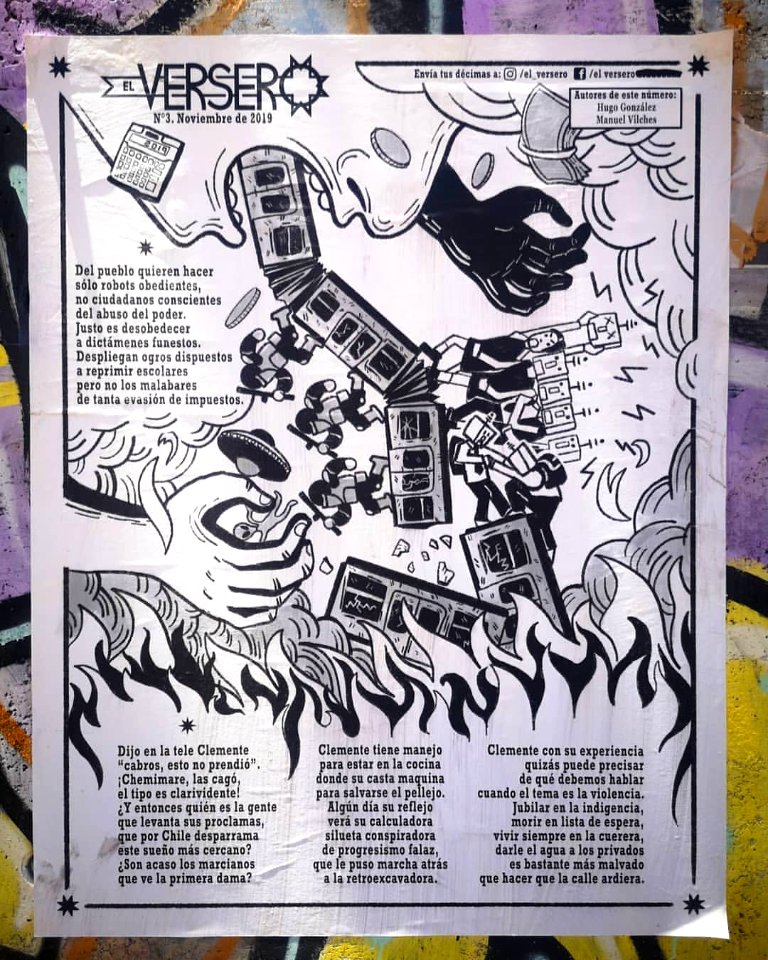 EL VERSERO
N°3. Noviembre de 2019
Envía tus décimas a: /el_versero /el versero
Autores de este número:
Hugo González
Manuel Vilches
2019
Del pueblo quieren hacer
sólo robots obedientes,
no ciudadanos conscientes
del abuso del poder.
Justo es desobedecer
a dictámenes funestos.
Despliegan ogros dispuestos
a reprimir escolares
pero no los malabares
de tanta evasión de impuestos.
Dijo en la tele Clemente
“cabros, esto no prendió”.
¡Chemimare, las cagó,
el tipo es clarividente!
¿Y entonces quién es la gente
que levanta sus proclamas,
que por Chile desparrama
este sueño más cercano?
¿Son acaso los marcianos
que ve la primera dama?
Clemente tiene manejo
para estar en la cocina
donde su casta maquina
para salvarse el pellejo.
Algún día su reflejo
verá su calculadora
silueta conspiradora
de progresismo falaz,
que le puso marcha atrás
a la retroexcavadora.
Clemente con su experiencia
quizás puede precisar
de qué debemos hablar
cuando el tema es la violencia.
Jubilar en la indigencia,
morir en lista de espera,
vivir siempre en la cuerera,
darle el agua a los privados
es bastante más malvado
que hacer que la calle ardiera.